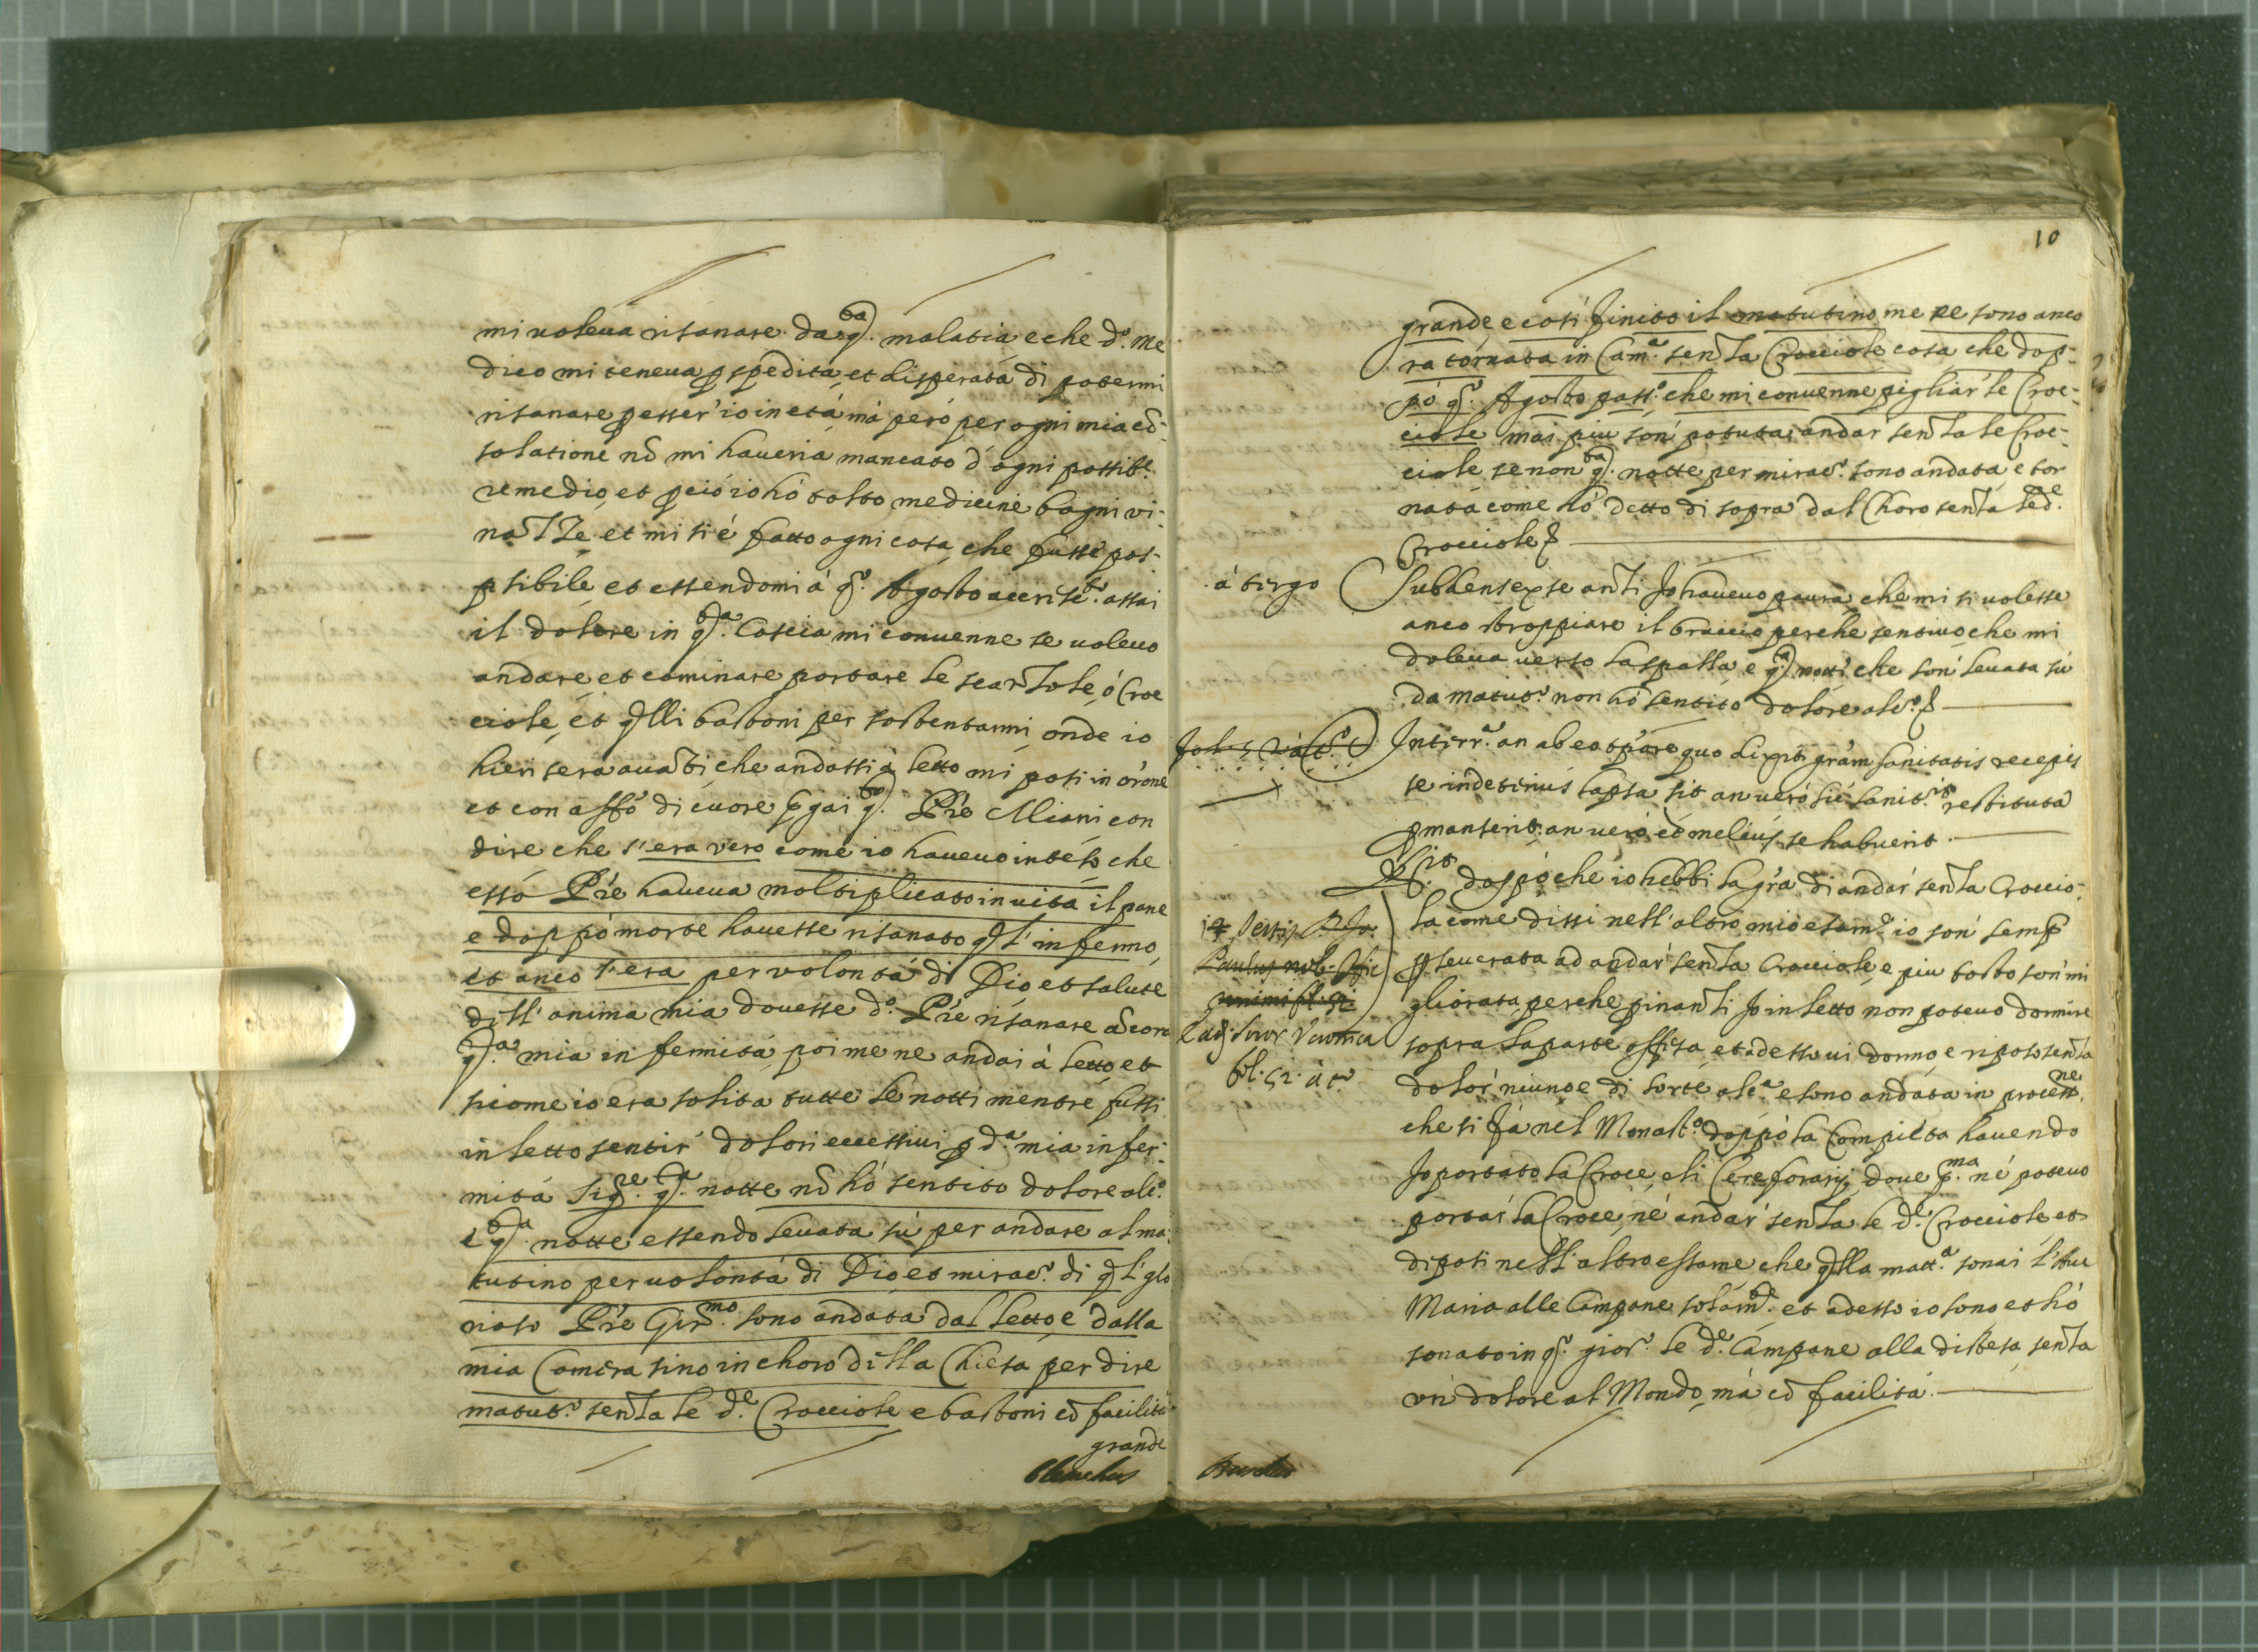 mi voleua risanare da q.ta malatia e che d.o Me
dico mi teneua p spedita, et disperata di potermi
risanare p esser' io in età, mà però per ogni mia cõ-
solatione nõ mi haueria mancato d'ogni possib.e
remedio, et p ciò io hò tolto medicine bagni vi-
naZZe et mi si è fatto ogni cosa che fusse pos-
sibile et essendomi à q.o Agosto accresc.to assai
il dolore in q.ta Coscia mi conuenne se uoleuo
andare, et caminare portare le scanZole, ò Croc
ciole, et qlli bastoni per sostentarmi, onde io
hieri sera auãti che andassi à letto mi posi in or'one
et con aff.o di cuore pgai q.to Pr'e Miani con
dire che s'era vero come io haueuo inteso che
esso Pr'e haueua moltiplicato in uita il pane
e doppò morte hauesse risanato ql'infermo,
et anco s'era per volontà di Dio et salute
dell'anima mia douesse d.o Pr'e risanare ãcora
q.ta mia infermità, poi me ne andai à letto, et
sicome io era solita tutte le notti mentre fussi
in letto sentir' dolori eccessiui p d.a mia infer-
mità Sig.re q.ta notte nõ hò sentito dolore alc.o
e q.ta notte essendo leuata sù per andare al ma-
tutino per uolontà di Dio et mirac.o di ql'glo
rioso Pr'e Gir.mo sono andata dal letto, e dalla
mia Camera sino in choro della Chiesa per dire
matut.o senZa le d.e Crocciole e bastoni cõ facilità
grande
10
grande e così finito il matutino me ne sono anco
ra tornata in Cam.a senZa Crocciole cosa che dop-
pò q.o Agosto pass.o che mi conuenne pigliar' le Croc-
ciole mai piu son' potuta andar' senZa le Croc-
ciole se non q.ta notte per mirac.o sono andata, e tor
nata come hò detto di sopra dal Choro senZa le d.e
Crocciole
à tergo
Subdens ex se anZi Jo haueuo paura che mi si uolesse
anco stroppiare il braccio perche sentiuo che mi
doleua uerso la spalla e q.ta notte che son' leuata sù
da matut.o non hò sentito dolore alc.o
Interr.a an ab eo tp'ore quo dixit gr'am sanitatis recepis
se in deterius lapsa sit an uero sic sanit.i restituta
pmanserit, an uerò et melius se habuerit
R.it doppò che io hebbi la gr'a di andar' senZa Croccio-
la come dissi nell'altro mio esam.e io son' semp
pseuerata ad andar' senZa Crocciole, e piu tosto son' mi
gliorata perche pinanZi Jo in letto non poteuo dormire
sopra la parte offesa, et adesso ui dormo, e riposo senZa
dolor' niuno e di sorte alc.a e sono andata in process.ne
che si fà nel Monast.o doppò la Compieta hauendo
Jo portato la Croce, e li Cereforarij, doue p.ma nè poteuo
portar' la Croce, nè andar' senZa le d.e Crocciole et
diposi nell'altro essame che qlla matt.a sonai l'Aue
Maria alle Campane solam.te et adesso io sono et hò
sonato in q.o gior.o le d.e Campane alla distesa, senZa
un' dolore al Mondo, mà cõ facilità.
Paulus
Suor Veronica